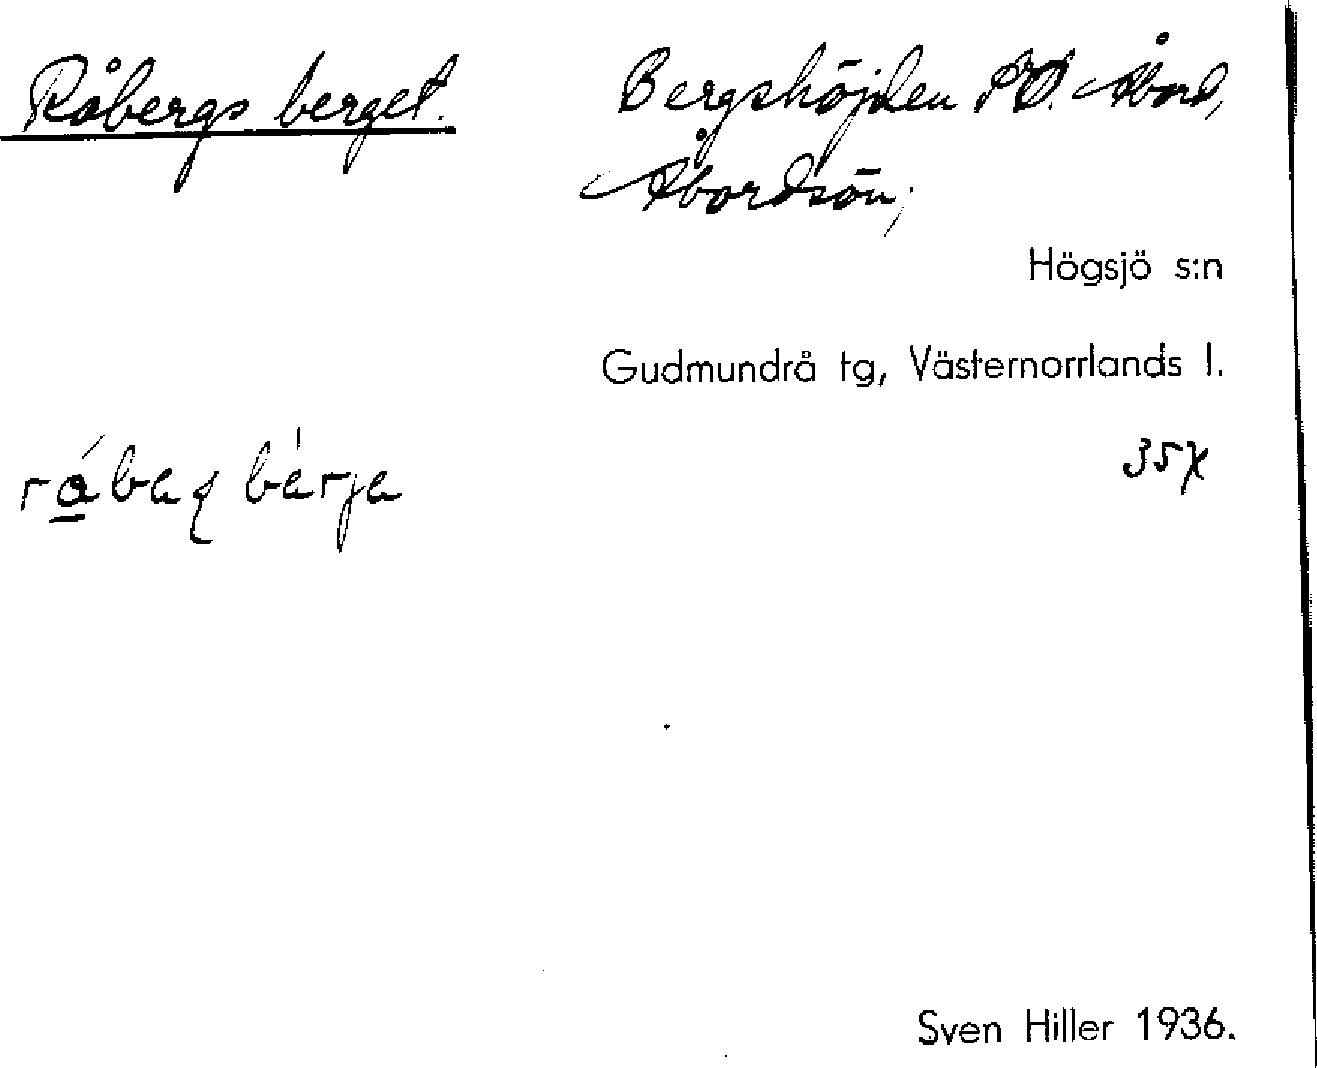 Råbergs berget.
Bergshöjden SO. Åbord,
Åbordsön;
Högsjö s:n
Gudmundrå tg, Västernorrlands l.
357
Sven Hiller 1936.